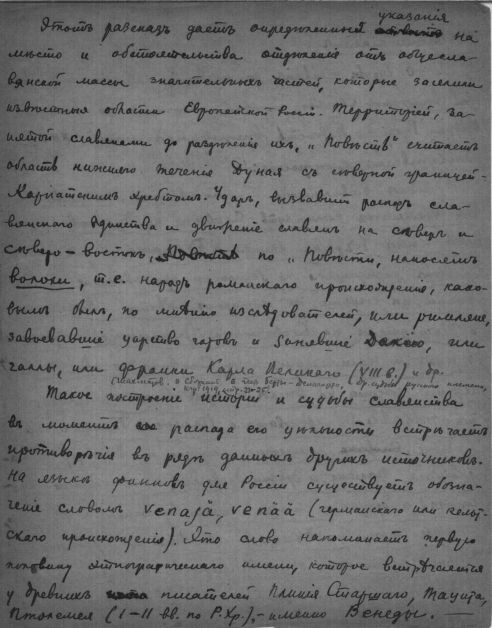 Этотъ разсказъ даетъ опредѣленный указанія на
мѣсто и обстоятельства отдѣленія отъ общесла-
вянской массы значительныхъ частей, которые заселили
извѣстныя области Европейской Россіи. Территоріей, за-
нятой славянами до раздѣленія ихъ, „Повѣсть" считаетъ
область нижняго теченія Дуная съ сѣверной границей -
Карпатскимъ хребтомъ. Ударъ, вызвавшій распадъ сла-
вянскаго единства и движеніе славянъ на сѣверъ и
сѣверо-востокъ, по „Повѣсти, наносятъ
волохи, т.е. народъ романскаго происхожденія, како-
вымъ былъ, по мнѣнію изслѣдователей, или римляне,
завоевавшіе царство гетовъ и занявшіе Дакію, или
галлы, или франки Карла Великаго (VIII в.) и др.
(Шахматов, 1919, стр. 21-25.
Такое построеніе исторіи и судьбы славянства
въ моментъ распада его цѣльности встрѣчаетъ
противорѣчія въ рядѣ данныхъ другихъ источниковъ.
На языкѣ финновъ для Россіи существуетъ обозна-
ченіе словомъ venäjä, venää (германскаго или кельт-
скаго происхожденія). Это слово напоминаетъ первую
половину этнографическаго имени, которое встрѣчается
у древнихъ писателей Плинія Старшаго, Тацита,
Птолемея (I-II вв. по Р.Хр.), - именно Венеды. —